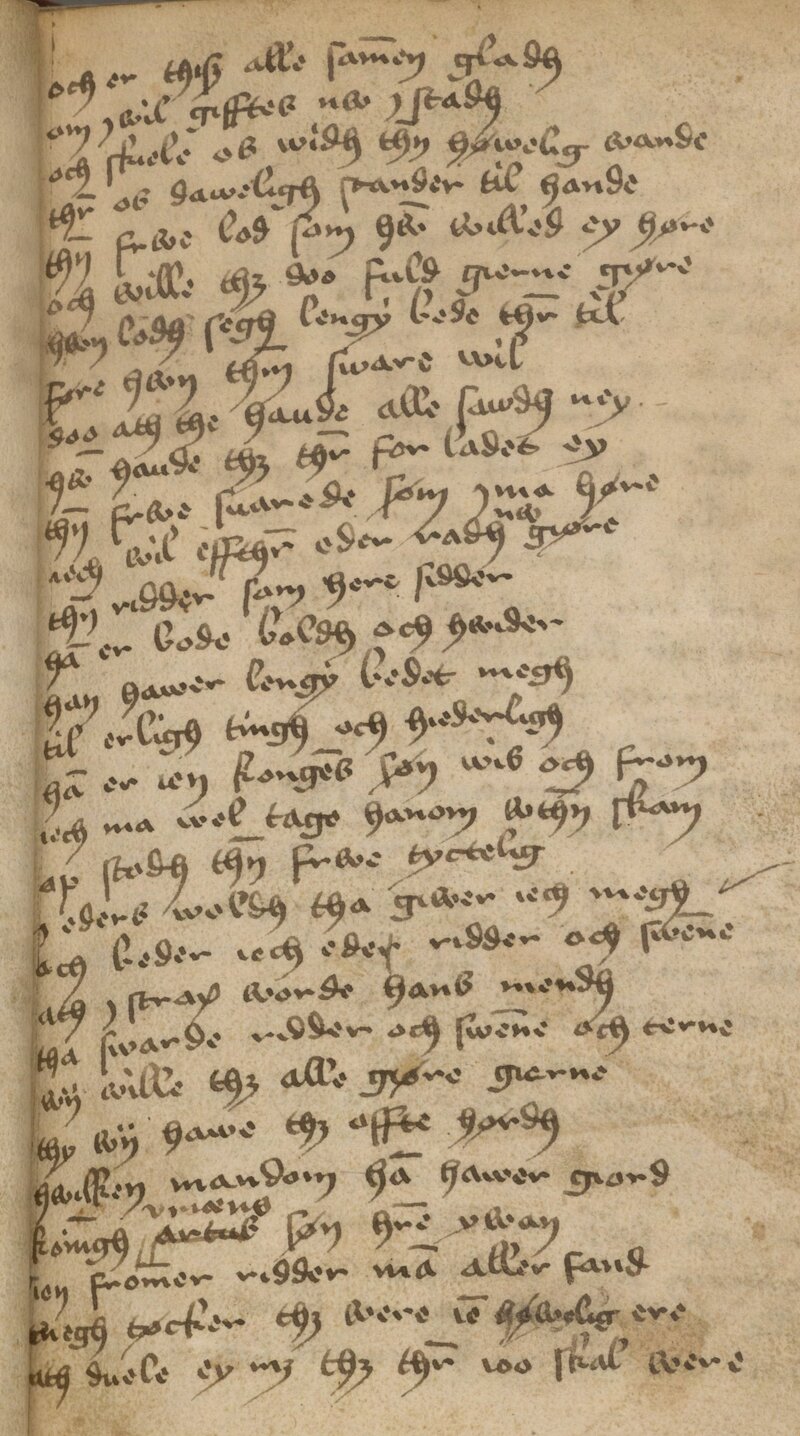 och er thiß alle samēn gladh
om j wil gifftes nw j stadh
och skule os widh thn̄ høwelig wande
thr̄ os daweligh stander til hande
thn̄ frwe lod som hw̄ willed ey høre
och wille thꝫ doo fuld gierne giøre
hwn lodh segh lengy bede thr̄ til
føre hwn thm̄ sware wil
doo ath the haude alle sawdh ney
hw̄ haude thꝫ thr̄ for ladet ey
thn̄ frwe suarede som j ma høre
iech wil effthr̄ eder radh nw giøre
thn̄ ridder som here sidder
hā er bode boldh och hwider
han hawer lengy bedet megh
til erligh tingh och hiederligh
hā er ien kongēs søn wis och from
iech ma wel tage hanom wthn̄ skam
ap stodh thn̄ frwe tyctelig
j eders woldh tha giwer iech megh
och beder iech eder ridder och swēne
ath j strax worde hans mendh
tha swarde ridder och swēne och terne
wij wille thꝫ alle giøre gierne
thy wij hawe thꝫ offte hørdh
hwilken mandom hā hawer giord
koningh vriœns artus søn hrē ywan
ien fromer ridder mā aller fand
megh tøcker thꝫ were iē høwelig ere
ath duele ey mꝫ thꝫ thr̄ ioo skal were